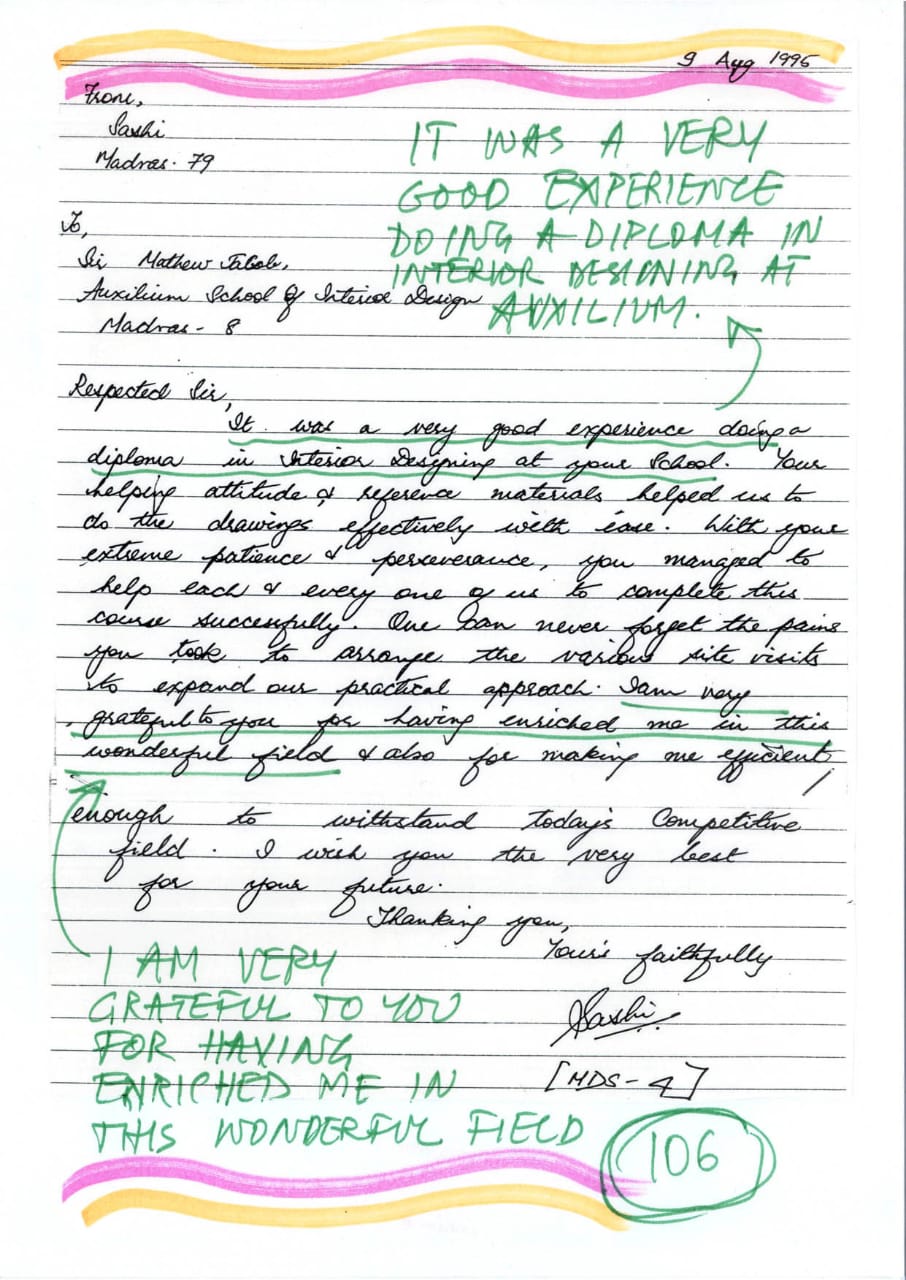 9 Aug 1995
From,
Sashi
Madras. 79
IT WAS A VERY
GOOD EXPERIENCE
DOING A DIPLOMA IN
INTERIOR DESIGNING AT
AUXILIUM.
To,
Sir Mathew Jakob,
Auxilium School Of Interior Design
Madras - 8
Respected Sir,
It was a very good experience doing a
diploma in Interior Designing at your School. Your
helping attitude & reference materials helped us to
do the drawings effectively with ease. With your
extreme patience & perseverance, you managed to
help each & every one of us to complete this
course successfully. One can never forget the pains
you took to arrange the various site visits
to expand our practical approach. I am very
grateful to you for having enriched me in this
wonderful field & also for making me efficient
enough to withstand today's Competitive
field. I wish you the very best
for your future.
Thanking you,
Your's faithfully
Sashi
[MDS-4]
I AM VERY
GRATEFUL TO YOU
FOR HAVING
ENRICHED ME IN
THIS WONDERFUL FIELD
106